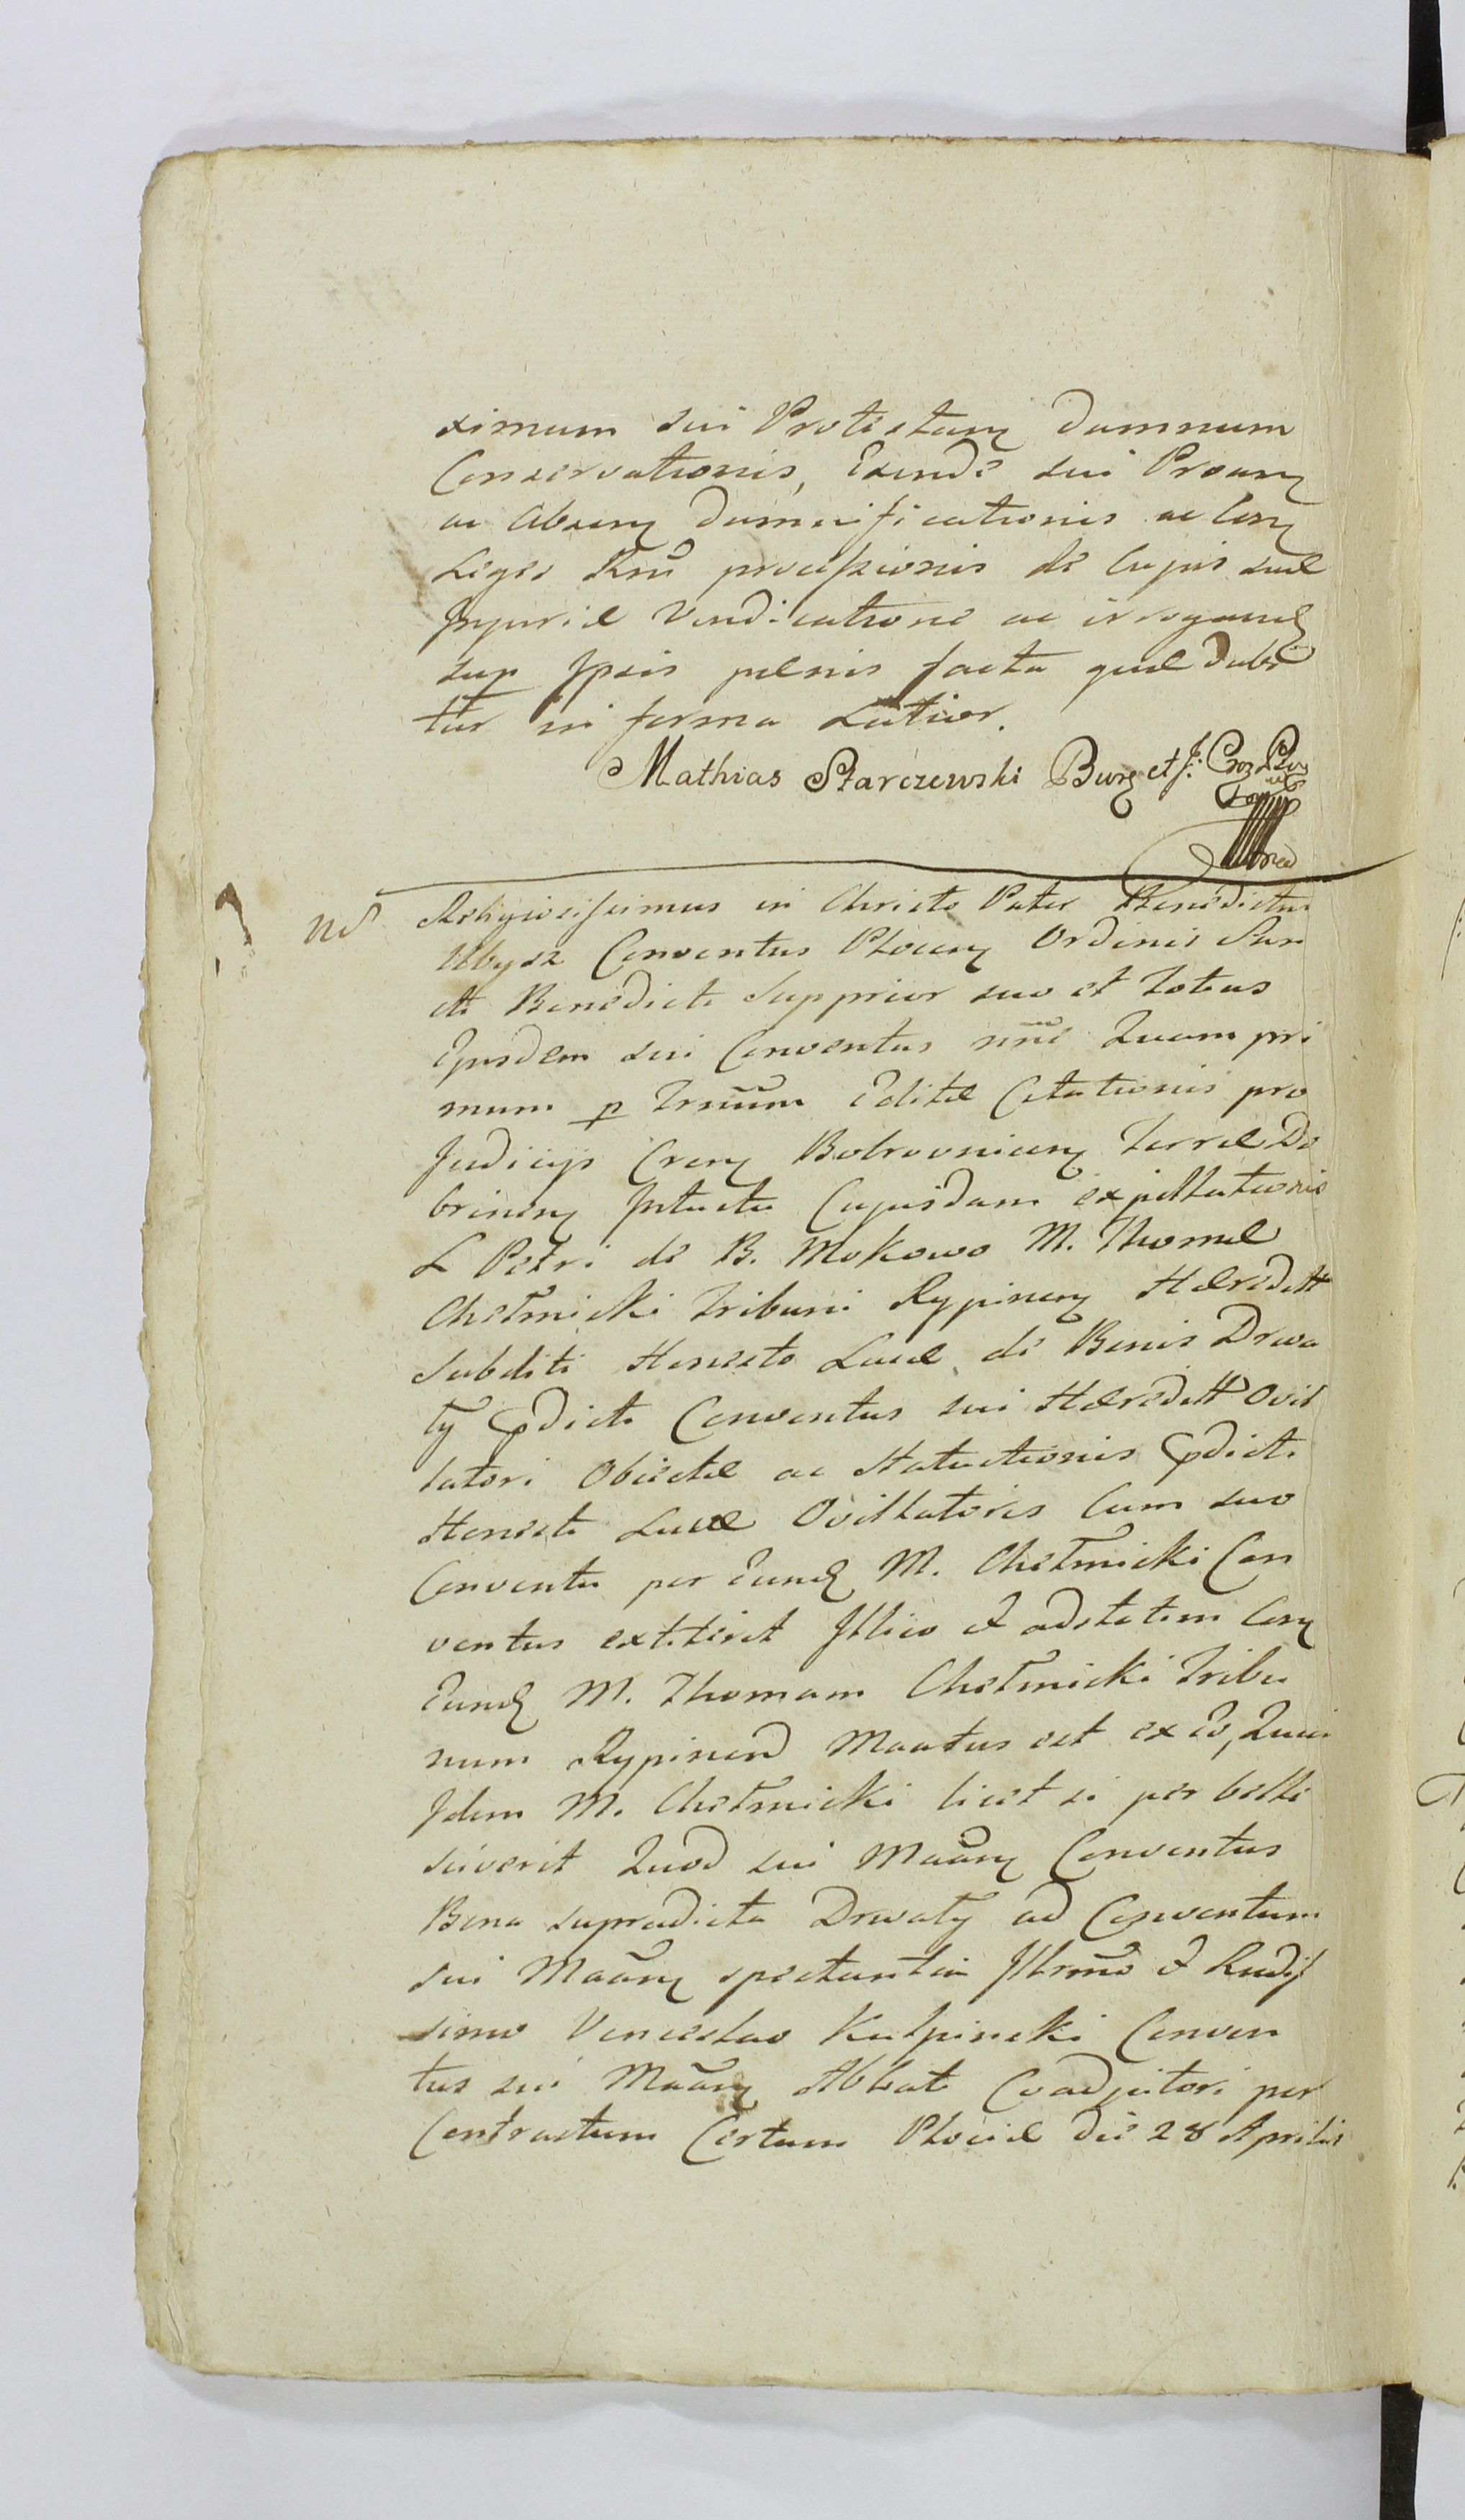 ximum sui Protestany damnum
Conservationis, Exinde sui Proany
ac Abseny damnificationis ac Cony
Leges Rnu processionis de Cujus suæ
Injuriæ Vendicatione ac irrogand
sup Ipsis pænis facta quæ dabi
tur in forma Latior.
Mathias Starczewski Burg et J:
Nd Religiosissimus in Christo Pater Benedictus
Ubysz Conventus Plocen Ordinis San
cti Benedicti Supprior suo et Totius
Ejusdem sui Conventus nñe Quam pri
mum p Trnũm Editæ Citationis pro
Judicijs Creny Bobrovniceny Terræ Do
brineny Intuitu Cujusdam expillationis
L Petri de B. Mokowo M. Thomæ
Chełmicki Tribuni Rypineny Hæredtt
Subditi Honesto Lucæ de Bonis Drwa
ły pdicti Conventus sui Hæredtt Ovil
latori Obiectæ ac Statuitionis pdicti
Honesti Lucæ Ovillatoris Cum suo
Conventu per Eund M. Chełmicki Con
ventus extiterit Illico & adstatim Cony
Eund M. Thomam Chełmicki Tribu
num Rypinen Maatus est ex Eo, Quia
Idem M. Chełmicki licet si per belle
sciverit Quod sui Maãny Conventus
Bona supradicta Drwały ad Conventum
sui Maãny spectantia Illrmõ & Rndis
simo Venceslao Kulpinski Conven
tus sui Maãny Abbati Coadjutori per
Contractum Certum Plociæ die 28 Aprilis